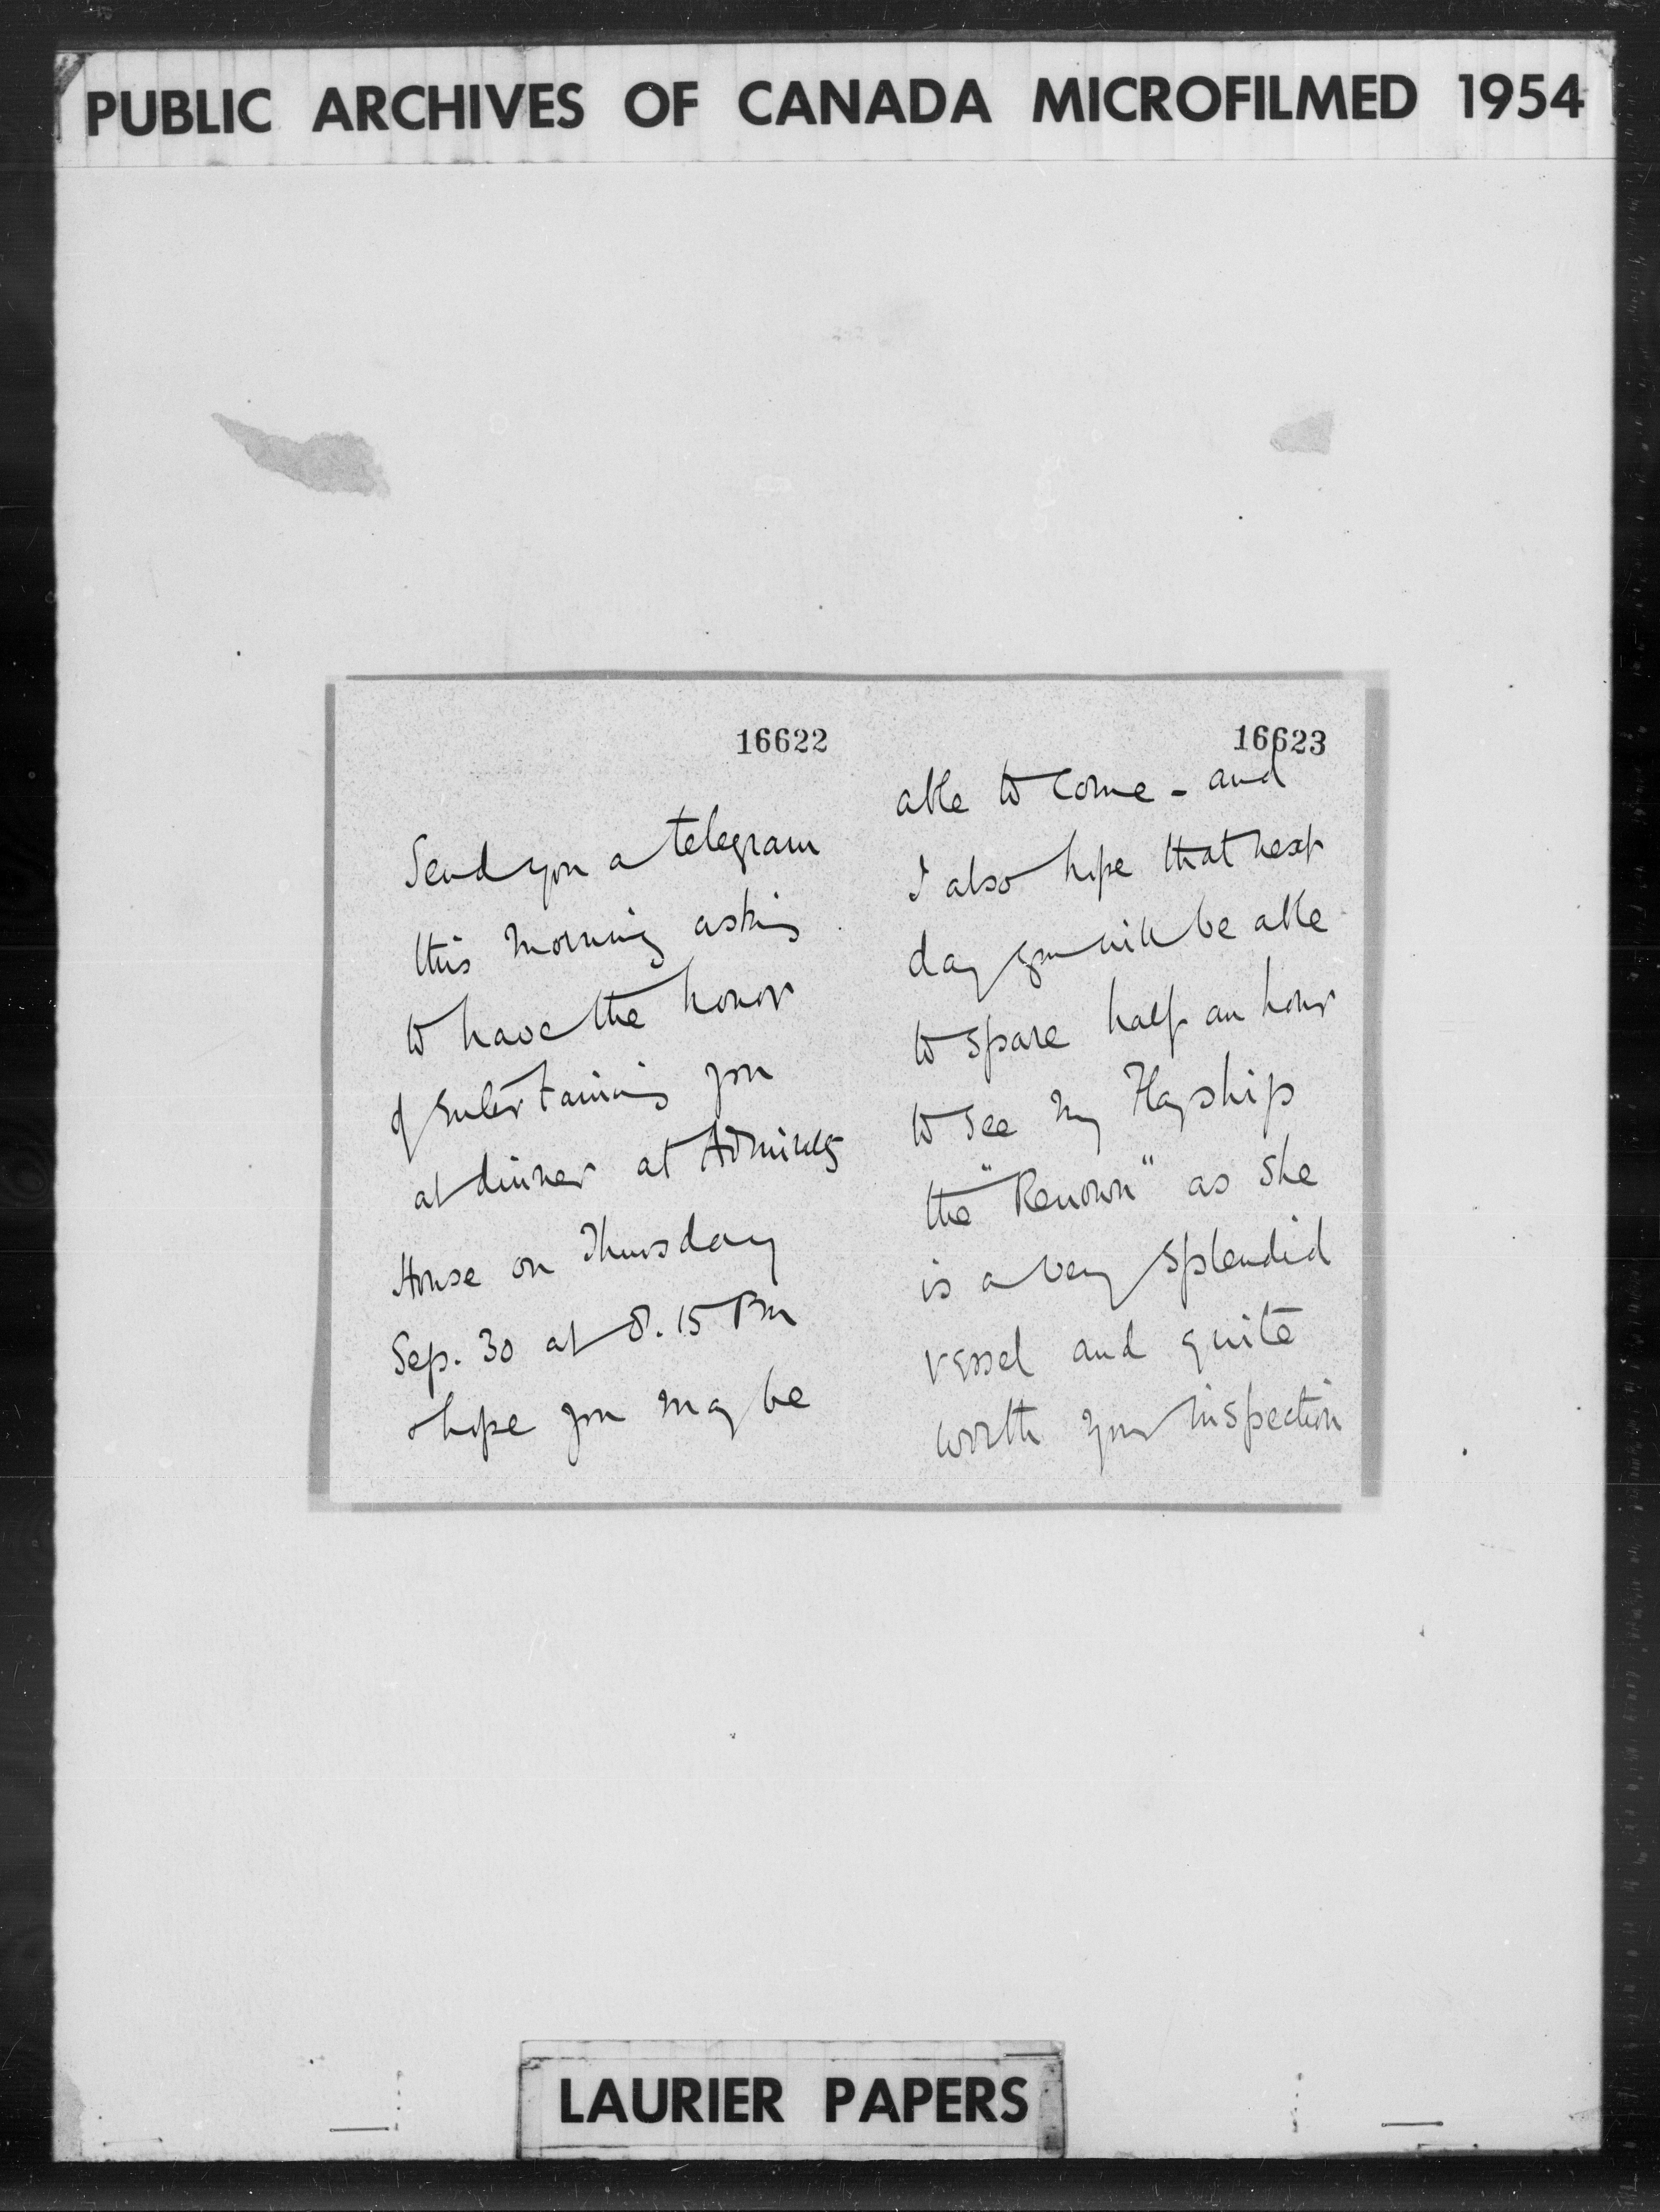 PUBLIC ARCHIVES OF CANADA MICROFILMED 1954
16622
Send you a telegram
this morning asking
to have the honor
of entertaining you
at dinner at Admiralty
House on Thursday
Sep. 30 at 8.15 PM
& hope you may be
16623
able to come - and
I also hope that next
day you will be able
to spare half an hour
to see my Flagship
the "Renown" as she
is a very splendid
vessel and quite
worth your inspection
LAURIER PAPERS